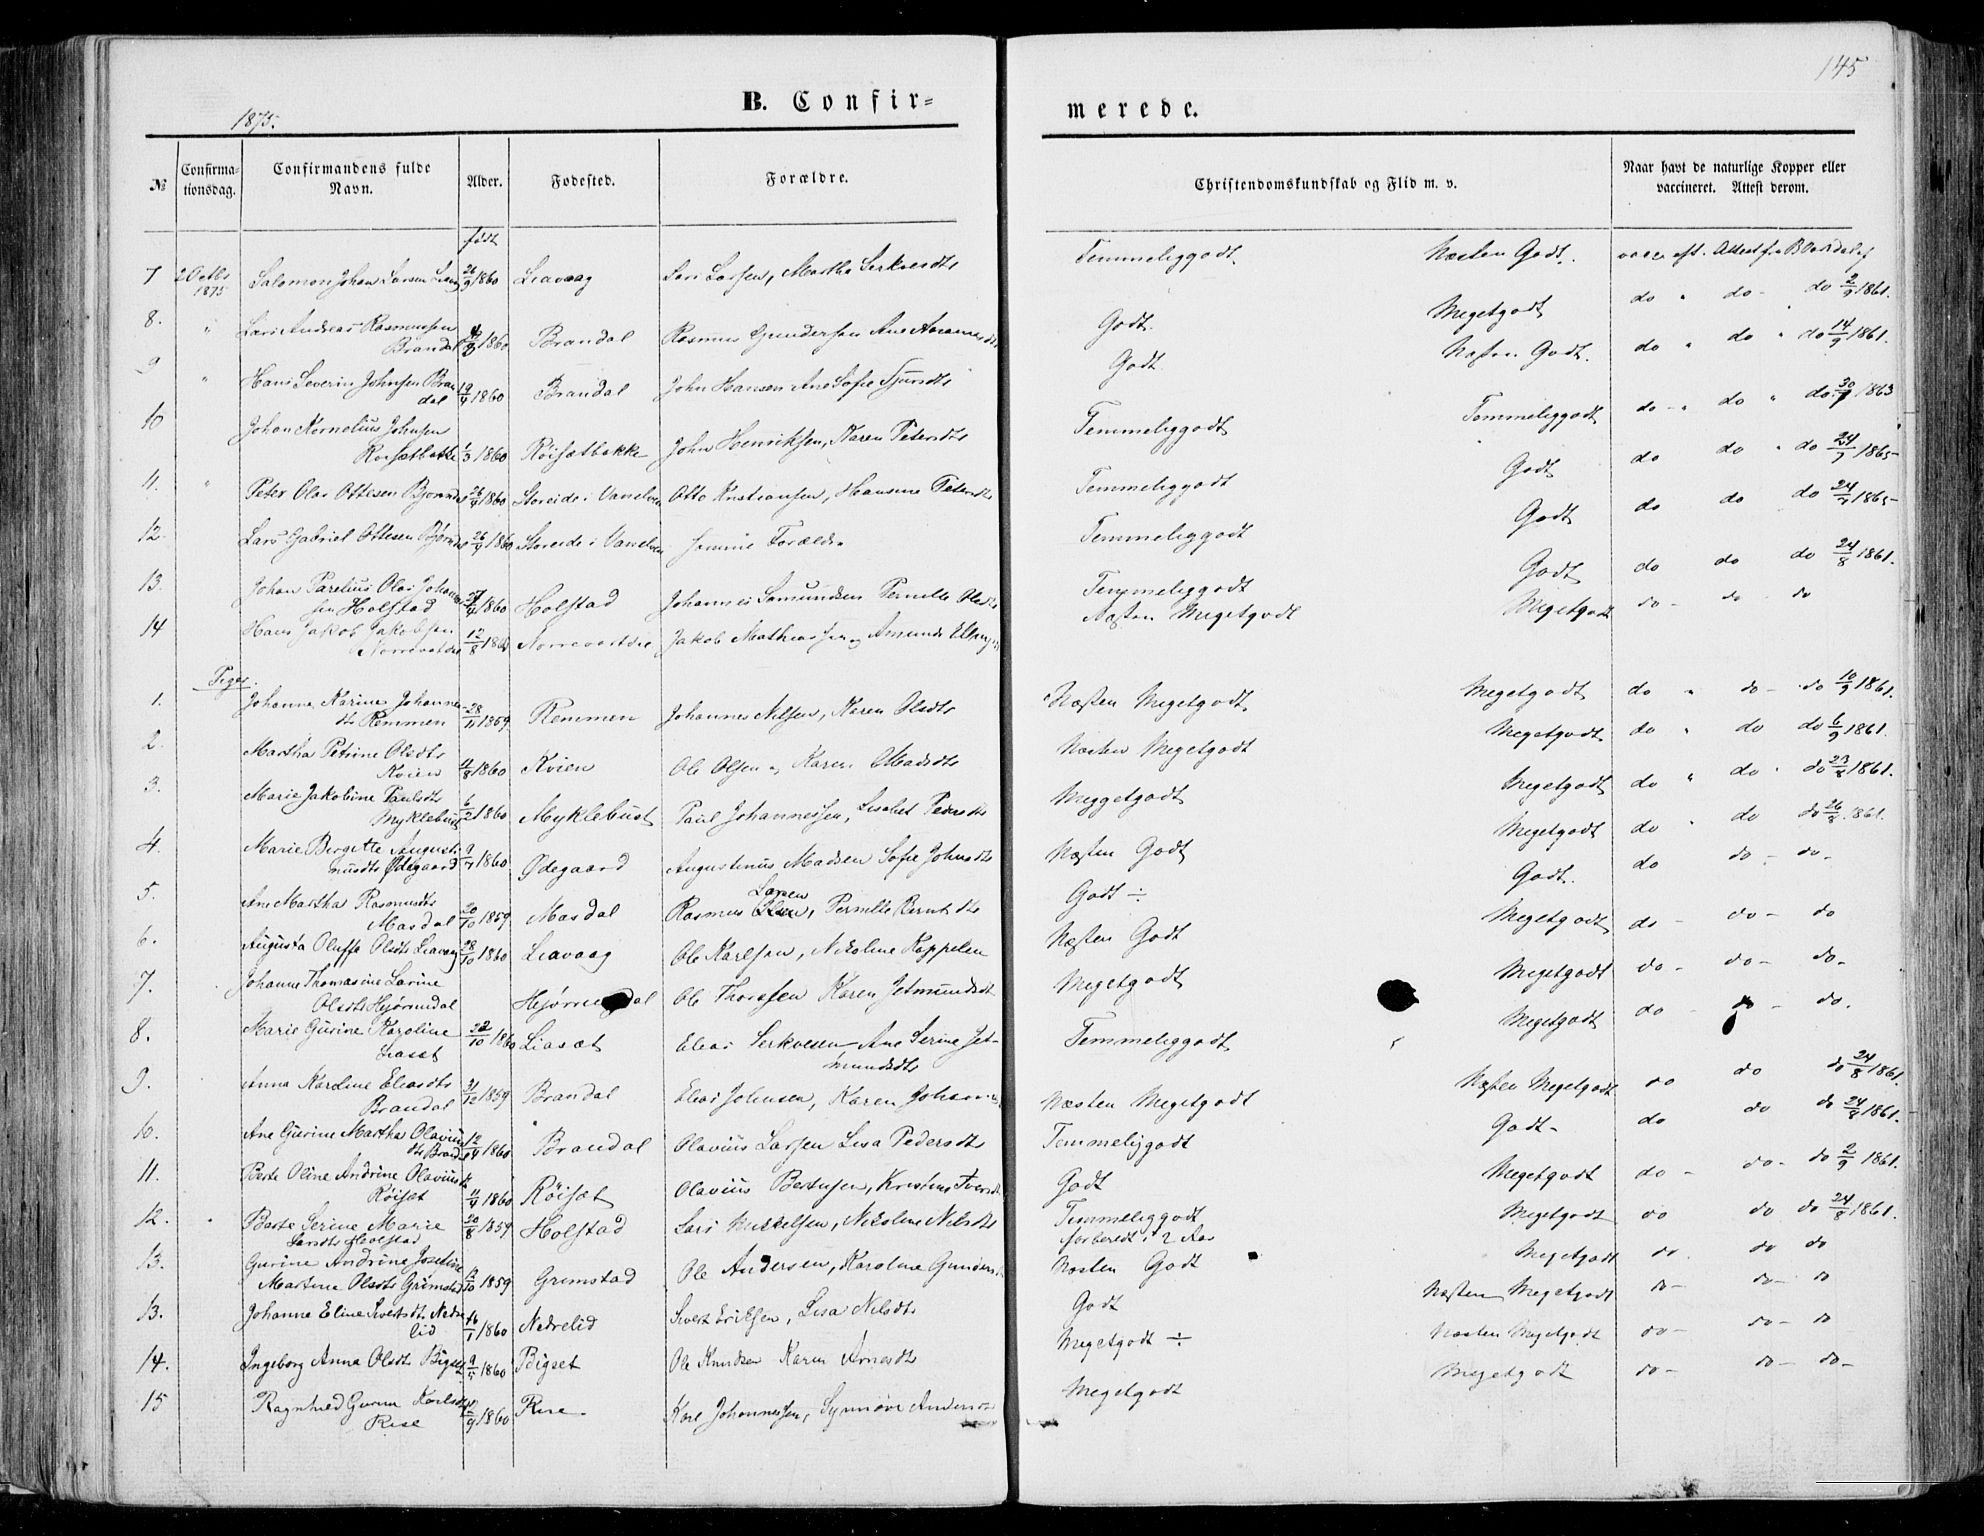 145
B. Confir=
merede.
1875.
№
Confirma-
tionsdag.
Confirmandens fulde
Navn.
Alder.
Fødested.
Forældre.
Christendomskundskab og Flid m. v.
Naar havt de naturlige Kopper eller
vaccineret. Attest derom.
født
7 2 Octbr 1875 Salomon Johan Larsen 26/9 1860 Liavaag Lars Larsen, Martha Serkvesdtr Temmeliggodt Næsten Godt. vacc. eft. Attest fr
8. " Lars Andreas Rasmussen
Brandal 1860 Brandal Rasmus Gundersen Ane Godt. Megetgodt do " do - do 2/9 1861.
9 " Hans Severin Johnsen Bran
dal 19/4 1860 Brandal John Hansen Ane Sofie Godt. Næsten Godt. do " do " do 14/9 1861.
10 Johan Kornelius Johnsen
1/3 1860 Røisætbakke John Henriksen, Karen Petersdtr Temmeliggodt Temmeliggodt do - " do " do 1863
11. " Peter Olai Ottesen 26/9 1860 Storeide i Vanelven Otto Kristiansen, Hansine Petersdtr Temmeliggodt Godt do do " do 24/7 1865-
12. Lars Gabriel Ottesen 26/9 1860 Storeide i Vanelven samme Forældre Temmeliggodt Godt do do do 24/7 1865-
13. Johan Parelius Olai Johannes
sen Holstad 1860 Holstad Johannes Pernille Olsdtr Temmeliggodt Godt do do do 24/8 1861.
14 Hans Jakob Jakobsen
12/8 Jakob Mathiassen Næsten Megetgodt Megetgodt do - do - do
Piger.
1. Johanne Karine Johannes
dtr Remmen 28/11 Remmen Johannes Nilsen, Karen Olsdtr Næsten Megetgodt. Megetgodt do " do - do 10/9 1861.
2. Martha Petrine Olsdtr
Kvien 1860 Kvien Ole Olsen Karen Næsten Megetgodt Megetgodt. do " do do 6/9 1861.
3. Marie Jakobine Paulsdtr
Myklebust 6/2 1860 Myklebust Paul Johannessen, Lisabet Pedersdtr Meggetgodt Megetgodt do " do " do 1861.
4. Marie Bergitte Augusti
nusdtr Ødegaard 9/7 1860 Ødegaard Augustinus Madsen Sofie Johnsdtr Næsten Godt Megetgodt do " do do 26/8 1861.
5. Ane Martha Rasmusdtr
Masdal 20/10 1859. Masdal Rasmus Larsen, Pernille Berntsdtr Godt ÷ Godt. do do - do -
6. Augusta Oluffa Olsdtr Liavaag 28/10 1860 Liavaag Ole Karlsen, Nikoline Koppelen Næsten Godt Megetgodt do - do - do
7. Johanne Thomasine Larine
Olsdtr Hjørundal Ole Karen Jetmundsdtr Megetgodt Megetgodt do - do - do -
8. Marie Gurine Karoline
Liaset 22/10 1860 Liasæt Elias Serkvesen Ane Serine Jet-
mundsdtr Temmeliggodt Megetgodt do - do.
9. Anna Karoline Eliasdtr
Brandal 31/12 1859 Brandal Elias Johnsen, Karen Næsten Megetgodt Næsten Megetgodt do do do 24/8 1861.
10. Ane Gurine Martha Olavius
dtr Brandal 12/4 1860 Brandal Olavius Larsen Lisa Pedersdtr Temmeligodt Godt - do do do 24/8 1861.
11. Berte Oline Andrine Olaviusdtr
Røiset 11/4 1860 Røisæt Olavius Bertsen, Kristine Godt Megetgodt do - do - do 2/9 1861.
12. " Berte Serine Marie
Larsdtr Holstad 20/8 1859 Holstad Lars Mikkelsen, Nikoline Nilsdtr Temmeliggodt
forberedt i 2 Aar Megetgodt do do do 24/8 1861.
13. Gurine Andrine Josefine
Martine Olsdtr Grimstad 1859 Grimstad Ole Andersen, Karoline Næsten Godt Megetgodt do. do do
13. Johanne Eline Sivertsdtr Nedre
lid 1860 Nedrelid Sivert Eriksen, Lisa Nilsdtr Godt Næsten Megetgodt do - do - do
14. Ingeborg Anna Olsdtr Bigset 9/5 1860 Bigset Ole Knudsen Karen Arnesdtr Megetgodt ÷ Næsten Megetgodt do - do - do
15 Ragnhild Karlsdtr
Rise 1860 Rise Karl Johannessen, Synnøve Megetgodt Megetgodt do - do - do -